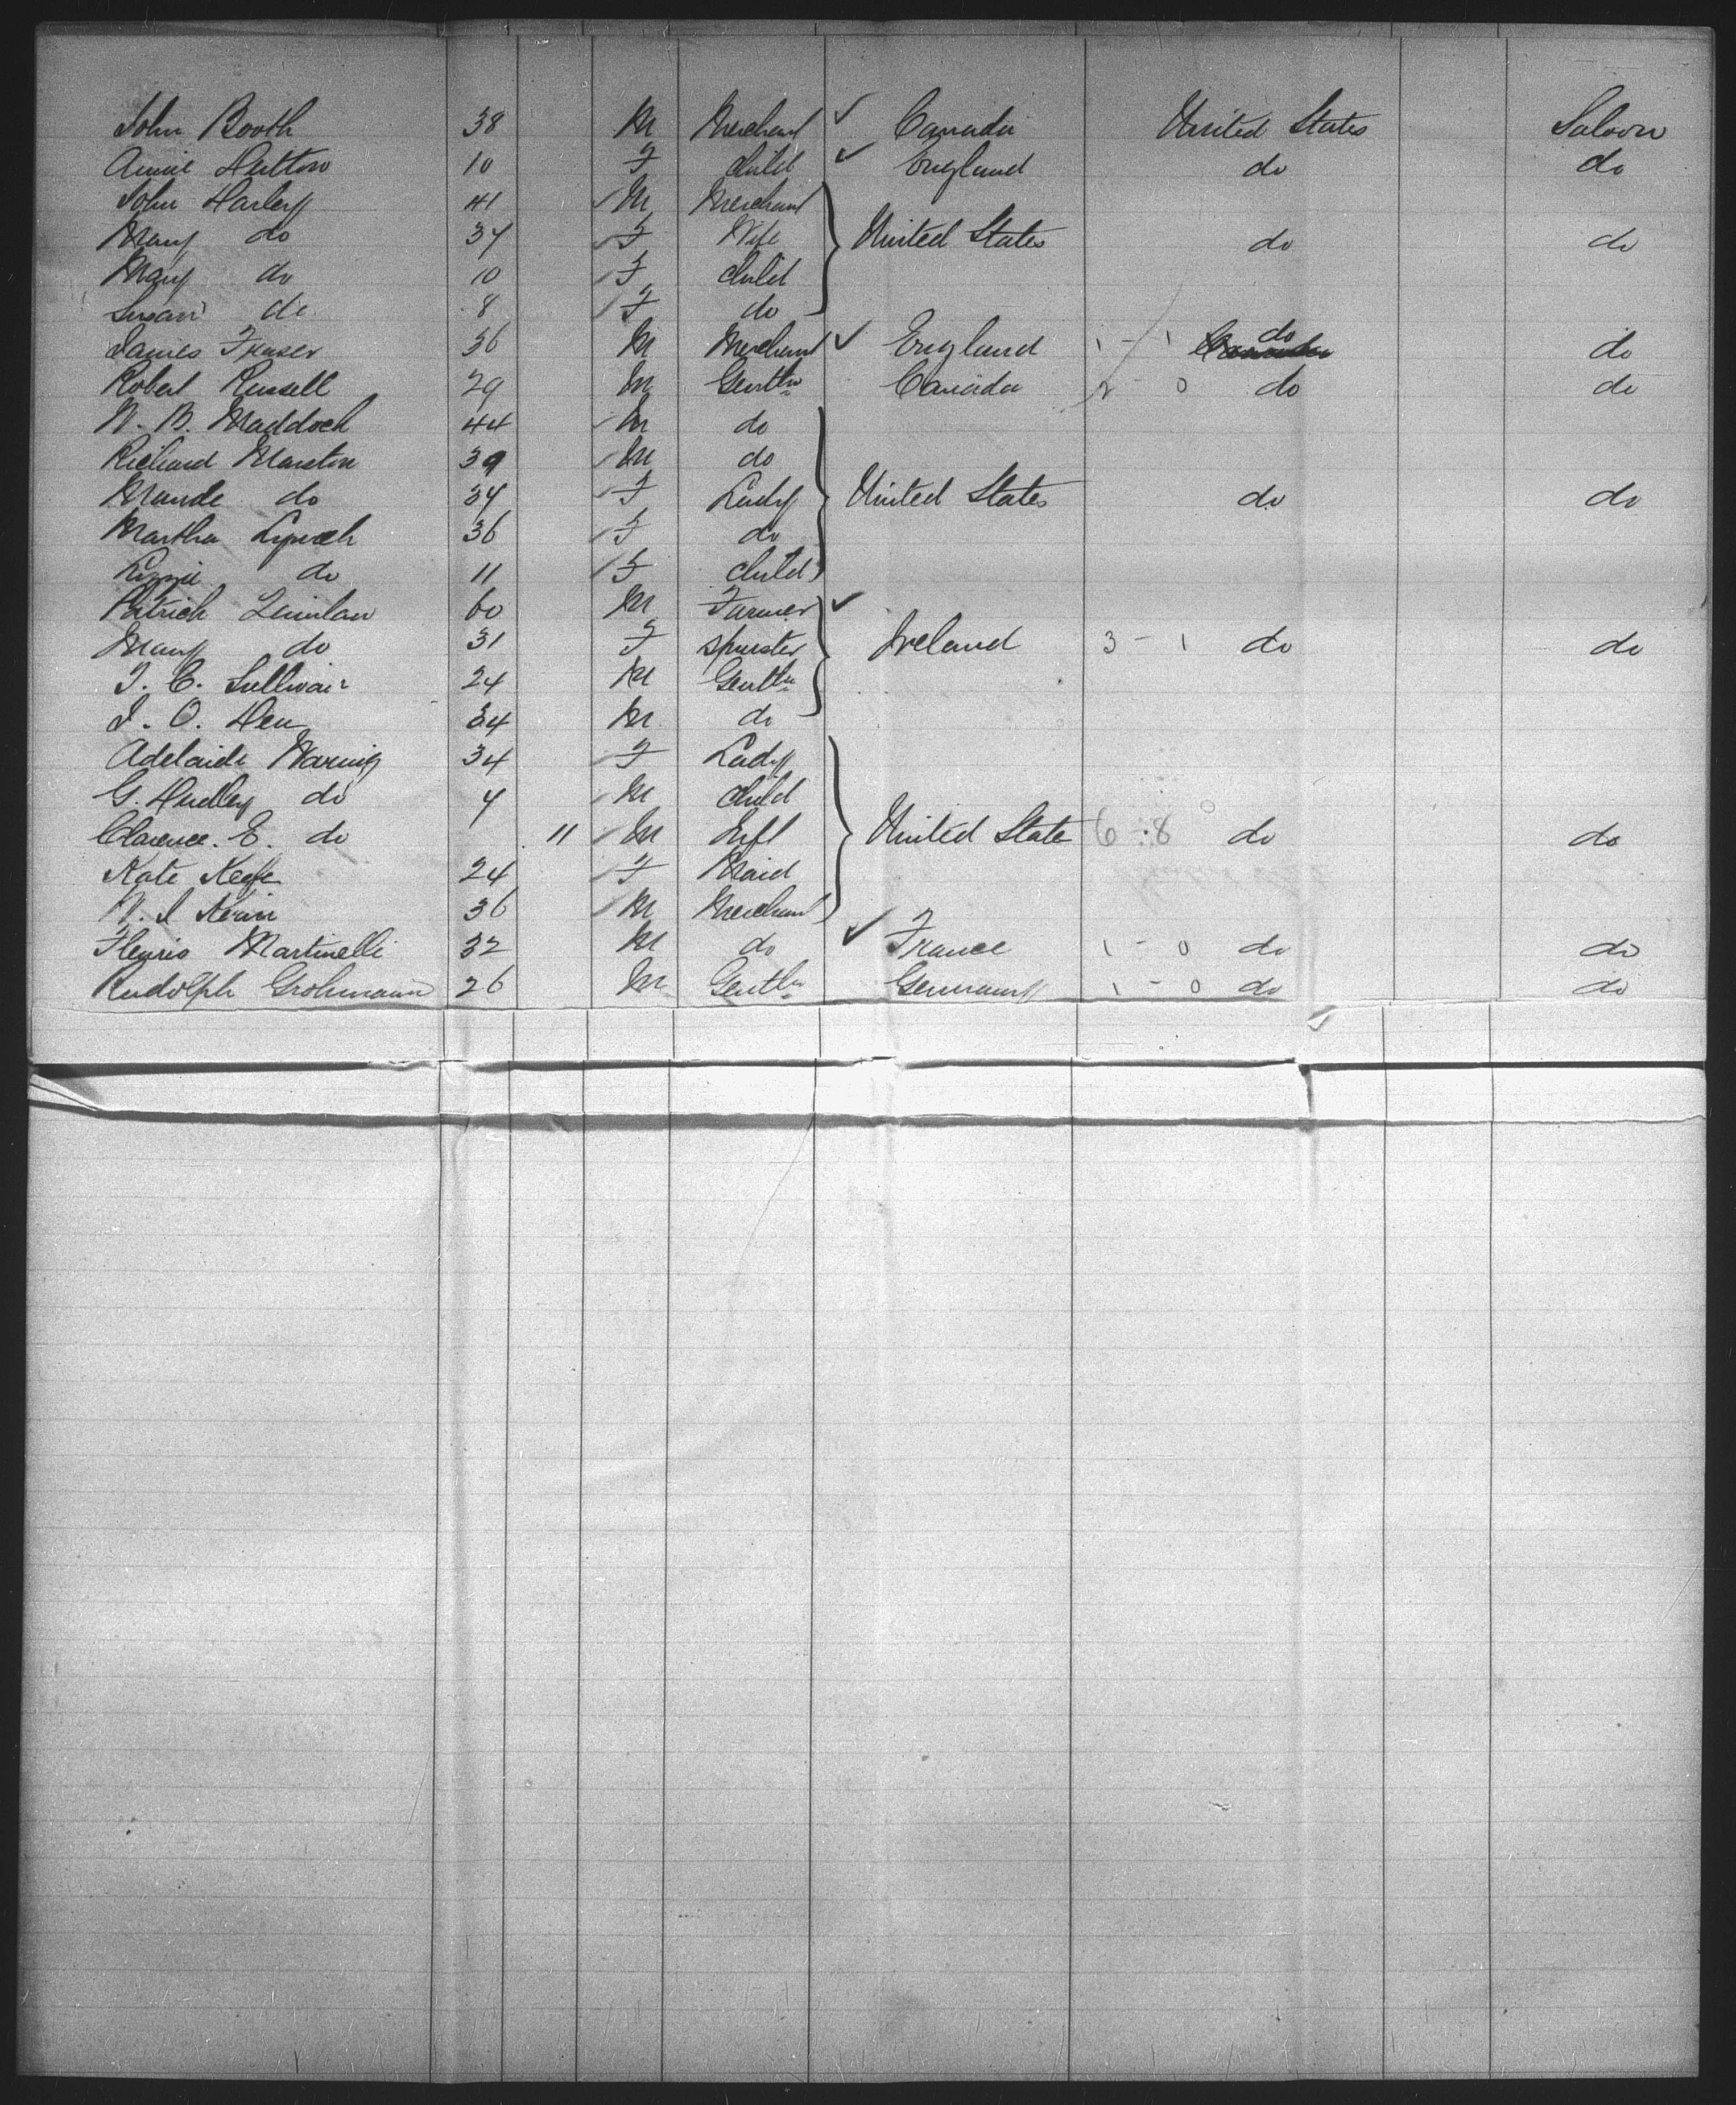 John Booth 38 M Merchant ✓ Canada United States Saloon
Annie Hutton 10 F Child ✓ England do do
John Harley 41 M Merchant
Mary do 34 F Wife United States do do
Mary do 10 F Child
Susan do 8 F do
James Fraser 36 M Merchant ✓ England 1 - 1 do do
Robert Russell 29 M Gentln Canada 2 - 0 do do
W. B. Maddock 44 M do
Richard Marston 39 M do
Maude do 34 F Lady United States do do
Martha Lynch 36 F do
Lizzie do 11 F Child
Patrick Quinlan 60 M Farmer ✓
Mary do 31 F Spinster Ireland 3 - 1 do do
T. C. Sullivan 24 M Gentln
J. O. Hea 34 M do
Adelaide Waring 34 F Lady
G. Hudley do 4 M Child
Clarence. E. do 11 M Inft United State 6 - 8 do do
Kate Keefe 24 F Maid
W. J 36 M Merchant
Martinelli 32 M do ✓ France 1 - 0 do do
Rudolph Grohmann 26 M Gentln Germany 1 - 0 do do